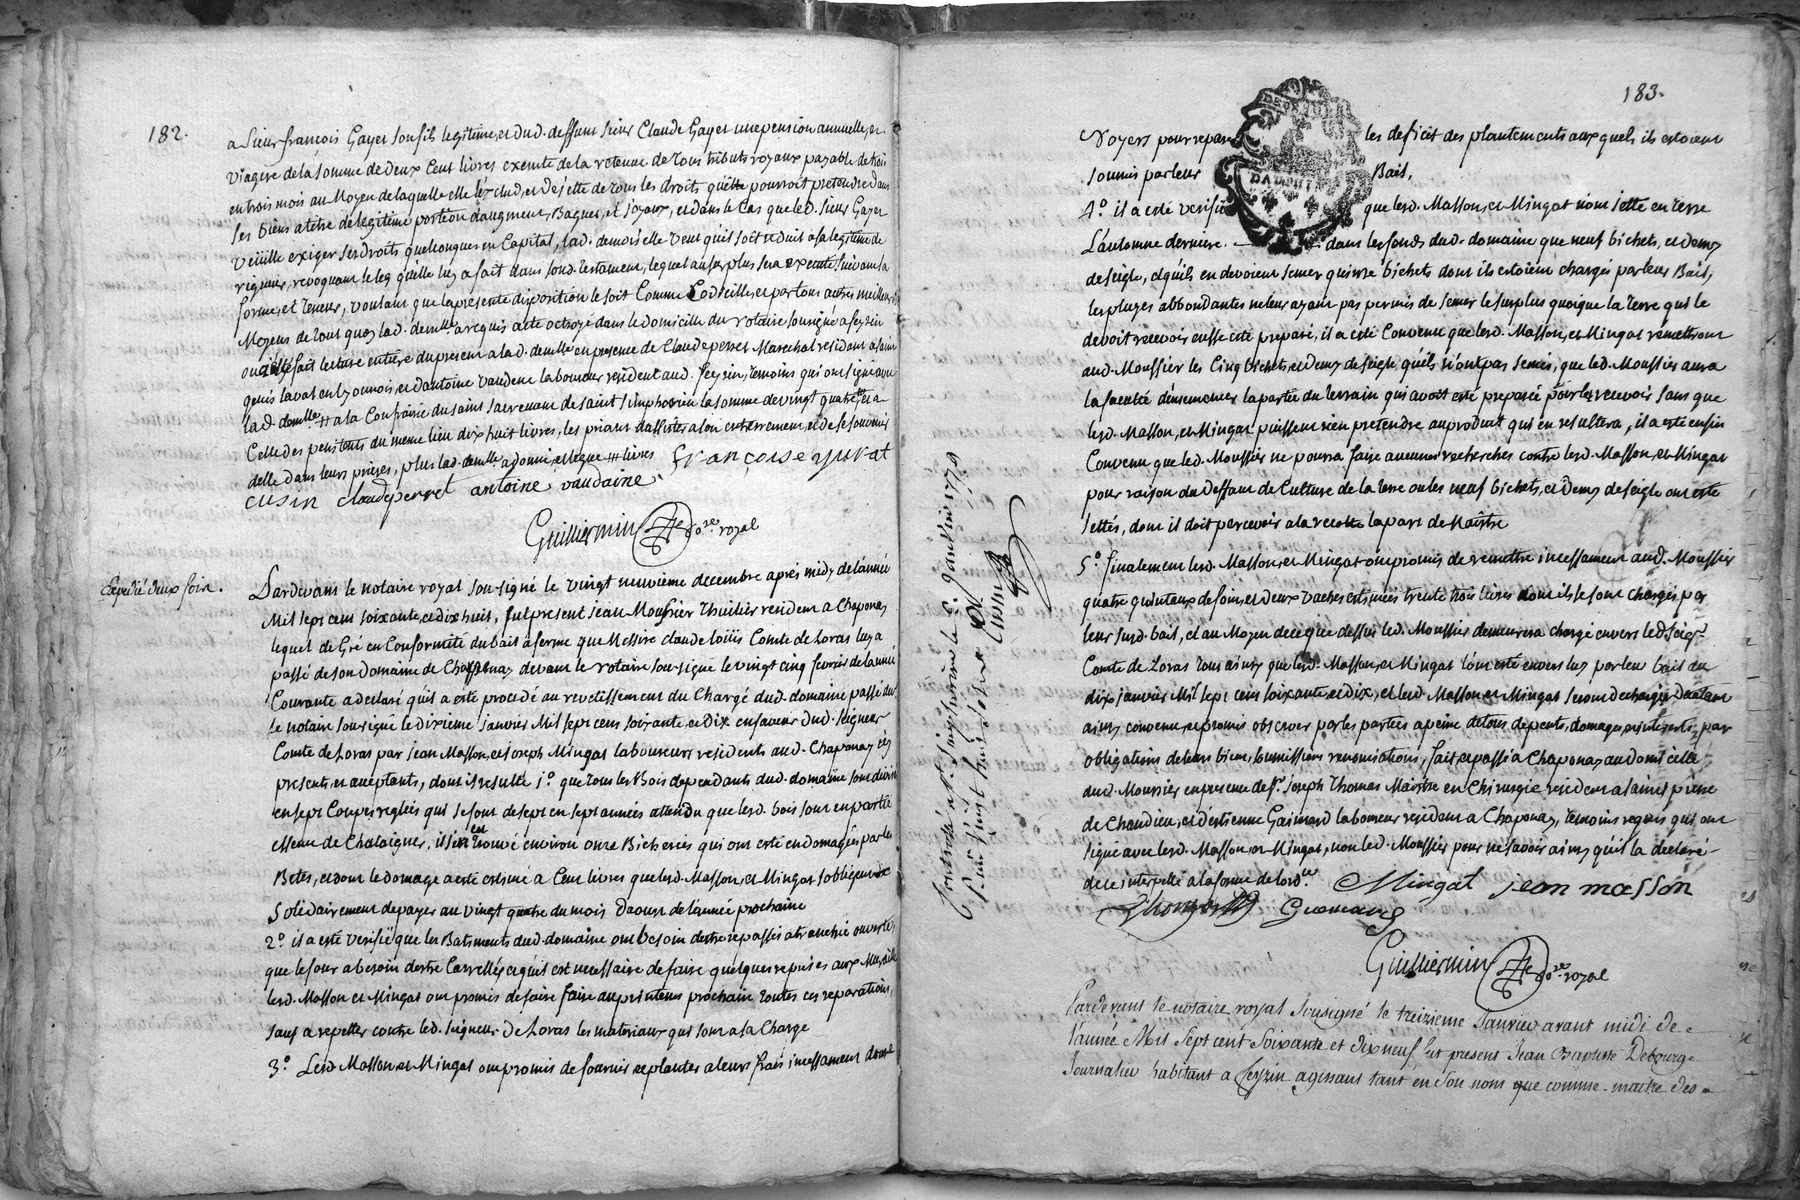 182.
a sieur françois Gayet son fils legitime, et dud. deffunt sieur Claude Gayet une pension annuelle, et
viagere de la somme de deux Cent livres exemte de la retenue de tous tributs royaux payable de trois
en trois mois au Moyen de laquelle elle l'exclud, et dejette de tous les droits qu'elle pourroit pretendre dans
ses biens a titre de legitime portion d'augment, Bagues, et joyaux, et dans le Cas que led. sieur Gayet
veüille exiger ses droits quelconques en Capital, lad. demois'elle veut qu'il soit reduit a sa legitime de
rigueur, revoquant le leg qu'elle luy a fait dans sond. testament, lequel au surplus sera executé suivant sa
forme, et teneur, voulant que la presente disposition le soit Comme Codicille, et par tous autres meilleurs
Moyens de tout quoy lad. demlle a requis acte octroyé dans le domicille du notaire soussigné a feyzin
ou a esté fait lecture entiere du present a lad. demlle en presence de Claude perret Marechal residant a saint
genis laval en lyonnois, et d'antoine vaudene laboureur resident aud. feyzin, temoins qui ont signé avec
lad. demlle # a la Confrairie du saint sacrement de saint simphorien la somme de vingt quatre lt et a
Celle des penitents du meme lieu dix huit livres, les priant d'assister a son enterrement, et de se souvenir
d'elle dans leurs prieres, plus lad. demlle a donné, et legue livres françoise jurat
cusin claude perret antoine vaudaine
Guilliermin Nore royal
Expedié deux fois.
Pardevant le notaire royal sousigné le vingt neuvieme decembre après midy de l'année
Mil sept cent soixante, et dix huit, fut present jean Moussier Thuilier resident a Chaponay
lequel de Gré en Conformité du bail a ferme que Messire claude loüis Comte de Loras luy a
passé de son domaine de Chaponay devant le notaire sousigné le vingt cinq fevrier de l'année
Courante a declaré qu'il a esté procedé au revetissement du Chargé dud. domaine passé devt
le notaire sousigné le dixieme janvier Mil sept cent soixante, et dix en faveur dud. seigneur
Comte de Loras par jean Masson, et joseph Mingat laboureurs residents aud. Chaponay icy
presents, et acceptants, dont il resulte 1o. que tous les Bois dependants dud. domaine sont divisé
en sept Coupes reglées qui se font de sept en sept années attendu que lesd. bois sont en partie
essence de Chataigner, il s'en est trouvé environ onze Bicherées qui ont esté endomagées par les
Betes, et dont le domage a esté estimé a Cent livres que lesd. Masson, et Mingat s'obligent de
solidairement de payer au vingt quatre du mois d'aoust de l'année prochaine
2o. il a esté verifié que les Batiments dud. domaine ont besoin d'estre repassés a tranchée ouverte,
que le four a besoin d'estre Carrellé, et qu'il est necessaire de faire quelques reprises aux Murailles
lesd. Masson et Mingat ont promis de faire faire au printems prochain toutes ces reparations,
sauf a repetter contre led. seigneur de Loras les materiaux qui sont a sa Charge
3o. Lesd. Masson, et Mingat ont promis de fournir, et planter a leurs frais incessament douze
183.
Noyers pour reparer les deficit des plantements auxquels ils estoient
soumis par leur Bail,
4o. il a esté verifié que lesd. Masson, et Mingat n'ont jetté en terre
L'automne derniere dans les fonds dud. domaine que neuf bichets, et demy
de seigle, et qu'ils en devoient semer quinze bichets dont ils estoient chargés par leur Bail,
les pluyes abbondantes ne leur ayant pas permis de semer le surplus quoique la terre qui le
devoit recevoir eusse esté preparé, il a esté Convenu que lesd. Masson, et Mingat remettront
aud. Moussier les Cinq bichets, et demy de seigle qu'ils n'ont pas semés, que led. Moussier aura
la faculté d'ensemencer la partie du terrain qui avoit esté preparée pour les recevoir sans que
lesd. Masson, et Mingat puissent rien pretendre au produit qui en resultera, il a esté enfin
Convenu que led. Moussier ne pourra faire aucunes recherches contre lesd. Masson, et Mingat
pour raison du deffaut de Culture de la terre ou les neuf bichets, et Demy de seigle ont esté
jettés, dont il doit percevoir a la recolte la part de Maître
5o. finalement lesd. Masson, et Mingat ont promis de remettre incessament aud. Moussier
quatre quintaux de foin, et deux vaches estimées trente trois livres dont ils se sont chargés par
leur susd. bail, et au Moyen de ce que dessus led. Moussier demeurera chargé envers led. seigr.
Comte de Loras tout ainsy que lesd. Masson, et Mingat l'ont esté envers luy par leur bail du
dix janvier Mil sept cent soixante, et dix, et lesd. Masson, et Mingat seront dechargés d'autant
ainsy convenu, et promis observer par les parties a peine de tous depents, domages, et interests, par
obligations de leurs biens, soumissions, renonciations, fait, et passé a Chaponay au domicille
dud. Moussier en presence de sr. joseph Thomas Maistre en Chirurgie resident a saint pierre
de Chandieu, et d'estienne Gaimard laboureur resident a Chaponay, temoins requis qui ont
signé avec lesd. Masson, et Mingat, non led. Moussier pour ne sçavoir ainsy qu'il l'a declaré
de ce interpellé a la forme de l'ord.ce Mingat jean masson
Guemard
Guilliermin Nore royal
Controlé et insinué le janvier 1779
Pardevant le notaire royal sousigné le treizieme Janvier avant midi de
l'année Mil sept cent soixante et dix neuf fut present Jean Baptiste Debourge
Journalier habitant a feyzin agissant tant en son nom que comme maitre des